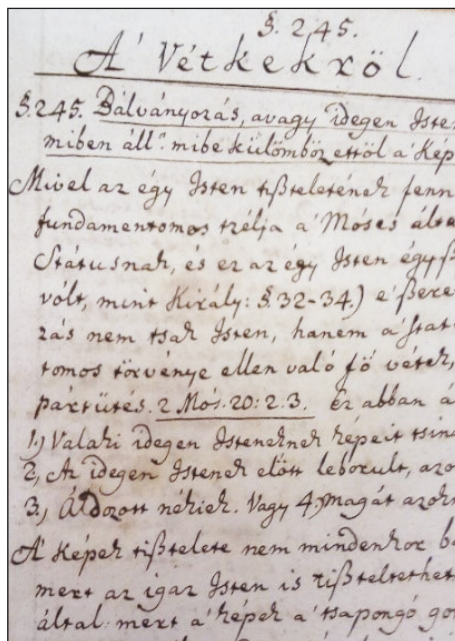 §. 245.
A' Vétkekről.
§. 245. Bálványozás, avagy idegen Isten
miben áll? mibe külömböz ettöl a' Kép
Mivel az égy Isten tißteletének fenn
fundamentomos tzélja a' Móses álta
Státusnak, és ez az égy Isten égyß
vólt, mint Király: §. 32-34.) e' ßere
zás nem tsak Isten, hanem a' stat
tomos törvénye ellen való fö vétek,
pártütés. 2 Mós. 20: 2. 3. Ez abban á
1.) Valaki idegen Isteneknek képeit tsin
2.) Az idegen Istenek elött leborult, azo
3.) Áldozott nékiek. Vagy 4.) magát azokn
A' Képek tißtelete nem mindenkor b
mert az igaz Isten is tißteltethet
által: mert a' képek a' tsapongó go